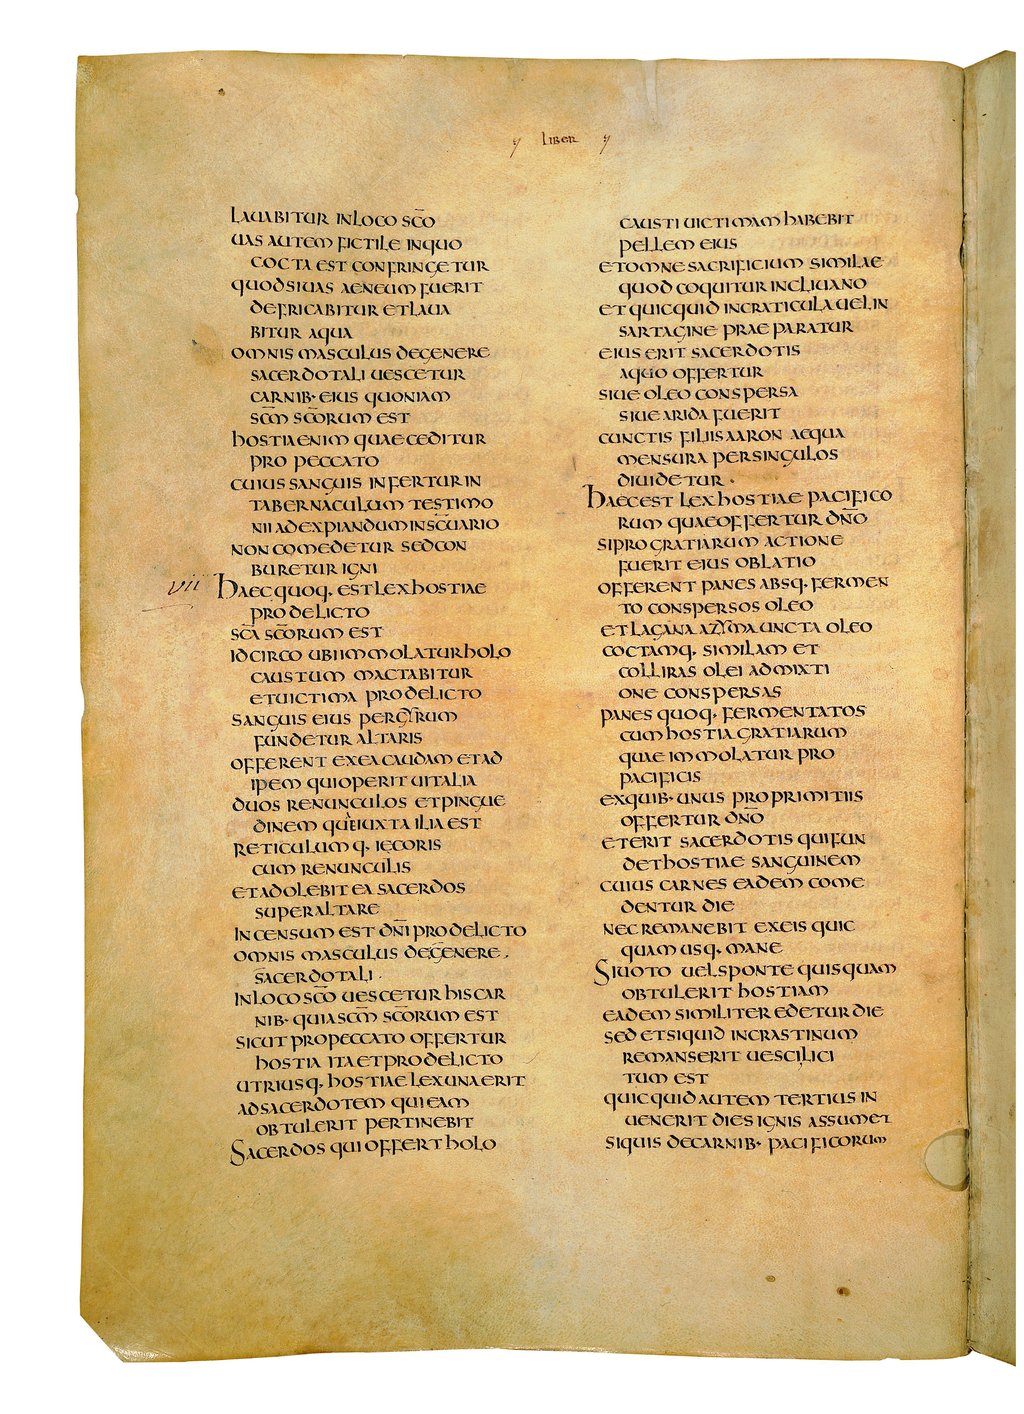 liber
LAUABITUR INLOCO SC̄O
UAS AUTEM FICTILE INQUO
COCTA EST CONFRINGETUR
QUODSIUAS AENEUM FUERIT
DEFRICABITUR ETLAUA
BITUR AQUA
OMNIS MASCULUS DEGENERE
SACERDOTALI UESCETUR
CARNIB· EIUS QUONIAM
SC̄M SC̄ORUM EST
HOSTIAENIM QUAECEDITUR
PRO PECCATO
CUIUS SANGUIS INFERTURIN
TABERNACULUM TESTIMO
NII ADEXPIANDUM INSC̄UARIO
NON COMEDETUR SEDCON
BURETUR IGNI
vii HAEC QUOQ. EST LEX HOSTIAE
PRO DELICTO
SC̄A SC̄ORUM EST
IDCIRCO UBIIMMOLATURHOLO
CAUSTUM MACTABITUR
ETUICTIMA PRO DELICTO
SANGUIS EIUS PERGYRUM
FUNDETUR ALTARIS
OFFERENT EXEA CAUDAM ETAD
IPEM QUIOPERIT UITALIA
DUOS RENUNCULOS ETPINGUE
DINEM QUEIUXTA ILIA EST
RETICULUMQ. IECORIS
CUM RENUNCULIS
ETADOLEBIT EA SACERDOS
SUPERALTARE
INCENSUM EST DN̄I PRO DELICTO
OMNIS MASCULUS DEGENERE.
SACERDOTALI.
INLOCO SC̄O UESCETUR HISCAR
NIB· QUIASC̄M SC̄ORUM EST
SICUT PROPECCATO OFFERTUR
HOSTIA ITAETPRO DELICTO
UTRIUSQ. HOSTIAE LEXUNAERIT
ADSACERDOTEM QUIEAM
OBTULERIT PERTINEBIT
SACERDOS QUI OFFERT HOLO
CAUSTI UICTIMAM HABEBIT
PELLEM EIUS
ETOMNESACRIFICIUM SIMILAE
QUOD COQUITUR INCLIUANO
ETQUICQUID INCRATICULAUELIN
SARTAGINE PRAEPARATUR
EIUS ERIT SACERDOTIS
AQUO OFFERTUR
SIUE OLEO CONSPERSA
SIUE ARIDA FUERIT
CUNCTIS FILIIS AARON AEQUA
MENSURA PERSINGULOS
DIUIDETUR.
HAECEST LEX HOSTIAE PACIFICO
RUM QUAEOFFERTUR DN̄O
SIPROGRATIARUM ACTIONE
FUERIT EIUS OBLATIO
OFFERENT PANES ABSQ. FERMEN
TO CONSPERSOS OLEO
ETLAGANA AZYMA UNCTA OLEO
COCTAMQ. SIMILAM ET
COLLIRAS OLEI ADMIXTI
ONE CONSPERSAS
PANES QUOQ. FERMENTATOS
CUM HOSTIAGRATIARUM
QUAE IMMOLATUR PRO
PACIFICIS
EXQUIB· UNUS PROPRIMITIIS
OFFERTUR DN̄O
ETERIT SACERDOTIS QUIFUN
DETHOSTIAE SANGUINEM
CUIUS CARNES EADEM COME
DENTUR DIE
NEC REMANEBIT EXEIS QUIC
QUAM USQ. MANE
SIUOTO UELSPONTE QUISQUAM
OBTULERIT HOSTIAM
EADEM SIMILITER EDETUR DIE
SED ETSIQUID INCRASTINUM
REMANSERIT UESCILICI
TUM EST
QUICQUIDAUTEM TERTIUS IN
UENERIT DIES IGNIS ASSUMET
SIQUIS DECARNIB· PACIFICORUM